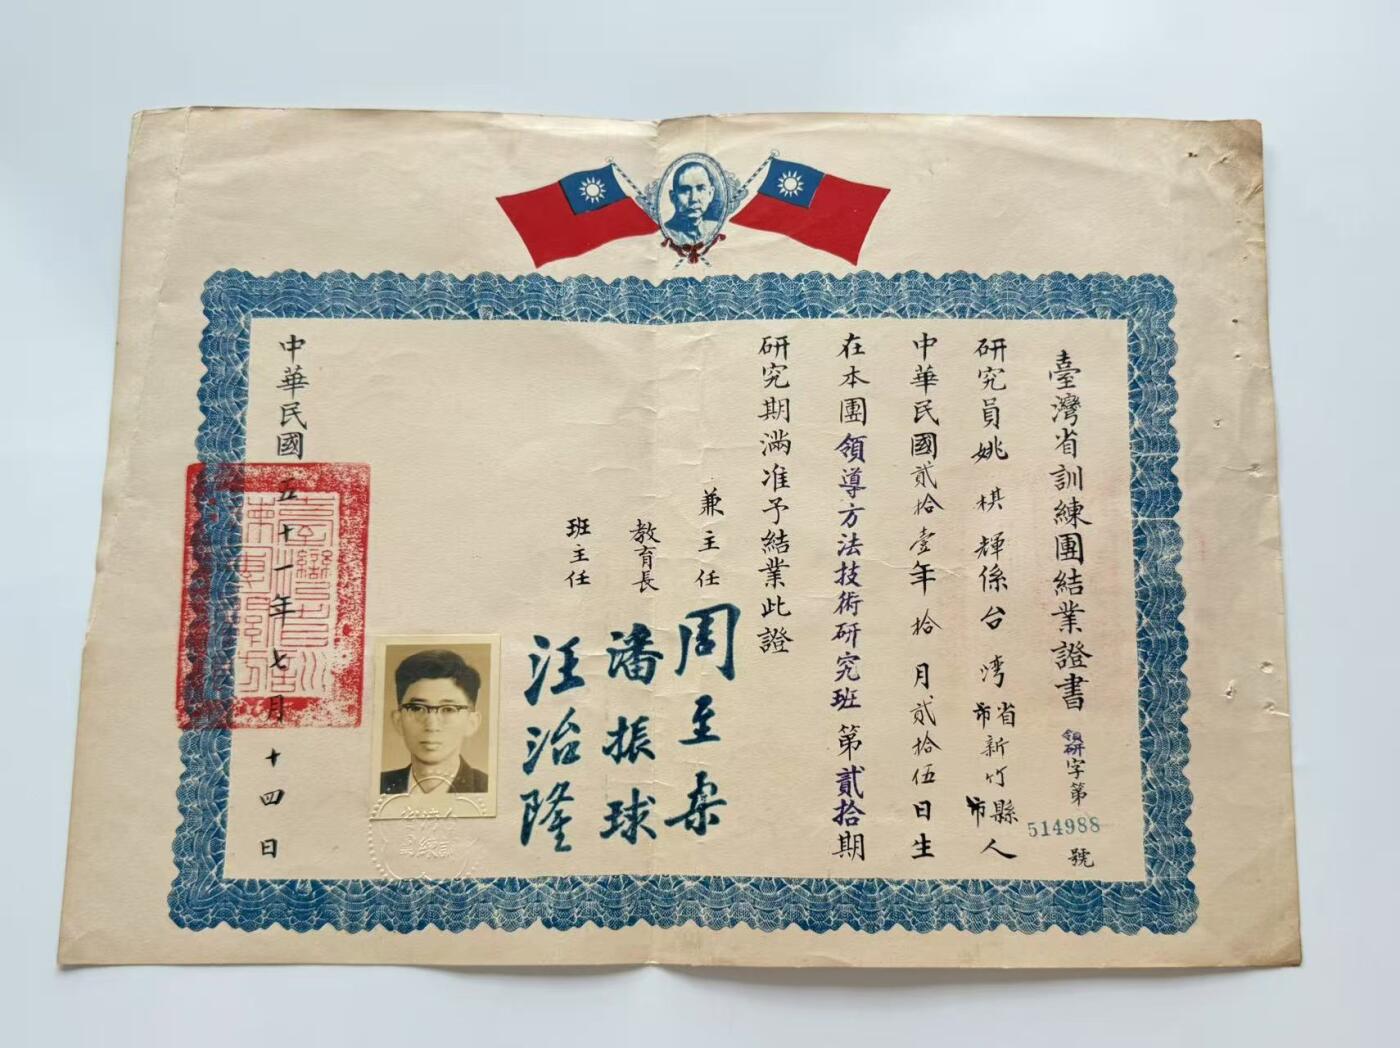 臺灣省訓練團結業證書
領研字第
514988
號
研究員姚棋輝係台灣省市新竹縣市人
中華民國貳拾壹年拾月貳拾伍日生
在本團領導方法技術研究班第貳拾期
研究期滿准予結業此證
兼主任 周至柔
教育長 潘振球
班主任 汪治隆
中華民國五十一年七月十四日